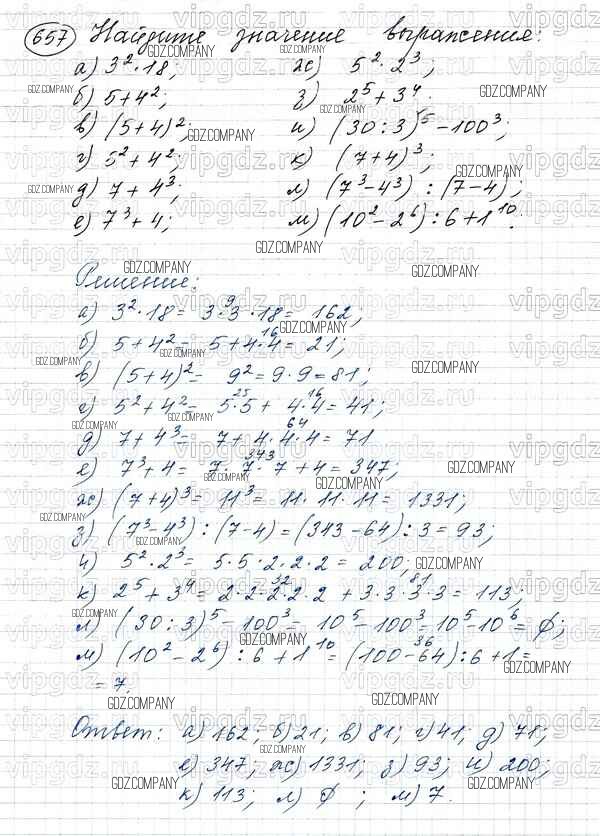 657 Найдите значение выражения:
а) 3²·18; ж) 5²·2³;
б) 5+4²; з) 2⁵+3⁴.
в) (5+4)²; и) (30:3)⁵-100³;
г) 5²+4²; к) (7+4)³;
д) 7+4³; л) (7³-4³):(7-4);
е) 7³+4; м) (10²-2⁶):6+1¹⁰.
Решение:
а) 3²·18= 3·3·18= 162;
б) 5+4²= 5+4·4= 21;
в) (5+4)²= 9²=9·9=81;
г) 5²+4²= 5·5+ 4·4=41;
д) 7+4³= 7+4·4·4= 71
е) 7³+4= 7·7·7+4=347;
ж) (7+4)³= 11³= 11·11·11=1331;
з) (7³-4³):(7-4)=(343-64):3=93;
и) 5²·2³= 5·5·2·2·2=200;
к) 2⁵+3⁴=2·2·2·2·2 +3·3·3·3=113;
л) (30:3)⁵-100³= 10⁵-100³=10⁵-10⁶=∅;
м) (10²-2⁶):6+1¹⁰=(100-64):6+1=
=7.
Ответ: а)162; б)21; в)81; г)41; д)71;
е)347; ж)1331; з)93; и)200;
к)113; л) ∅ ; м)7.